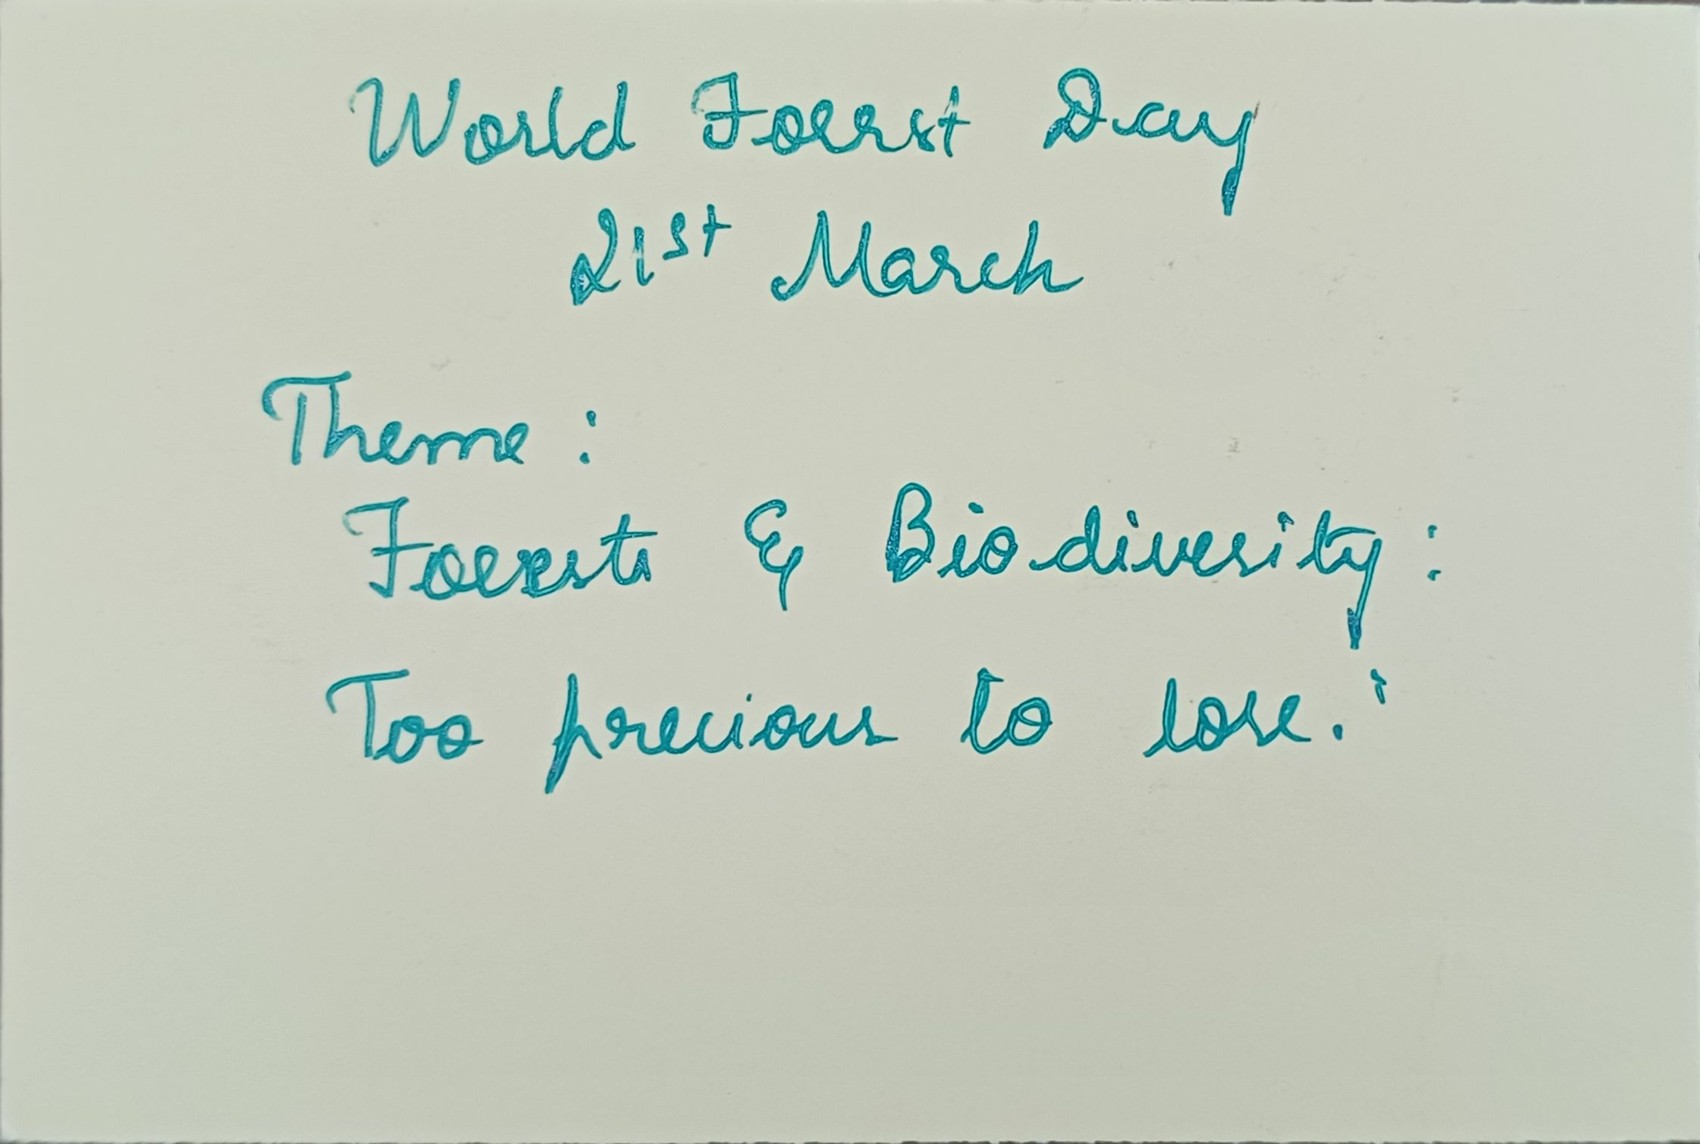 World Forest Day
21st March
Theme :
Forests & Biodiversity :
Too precious to lose.'